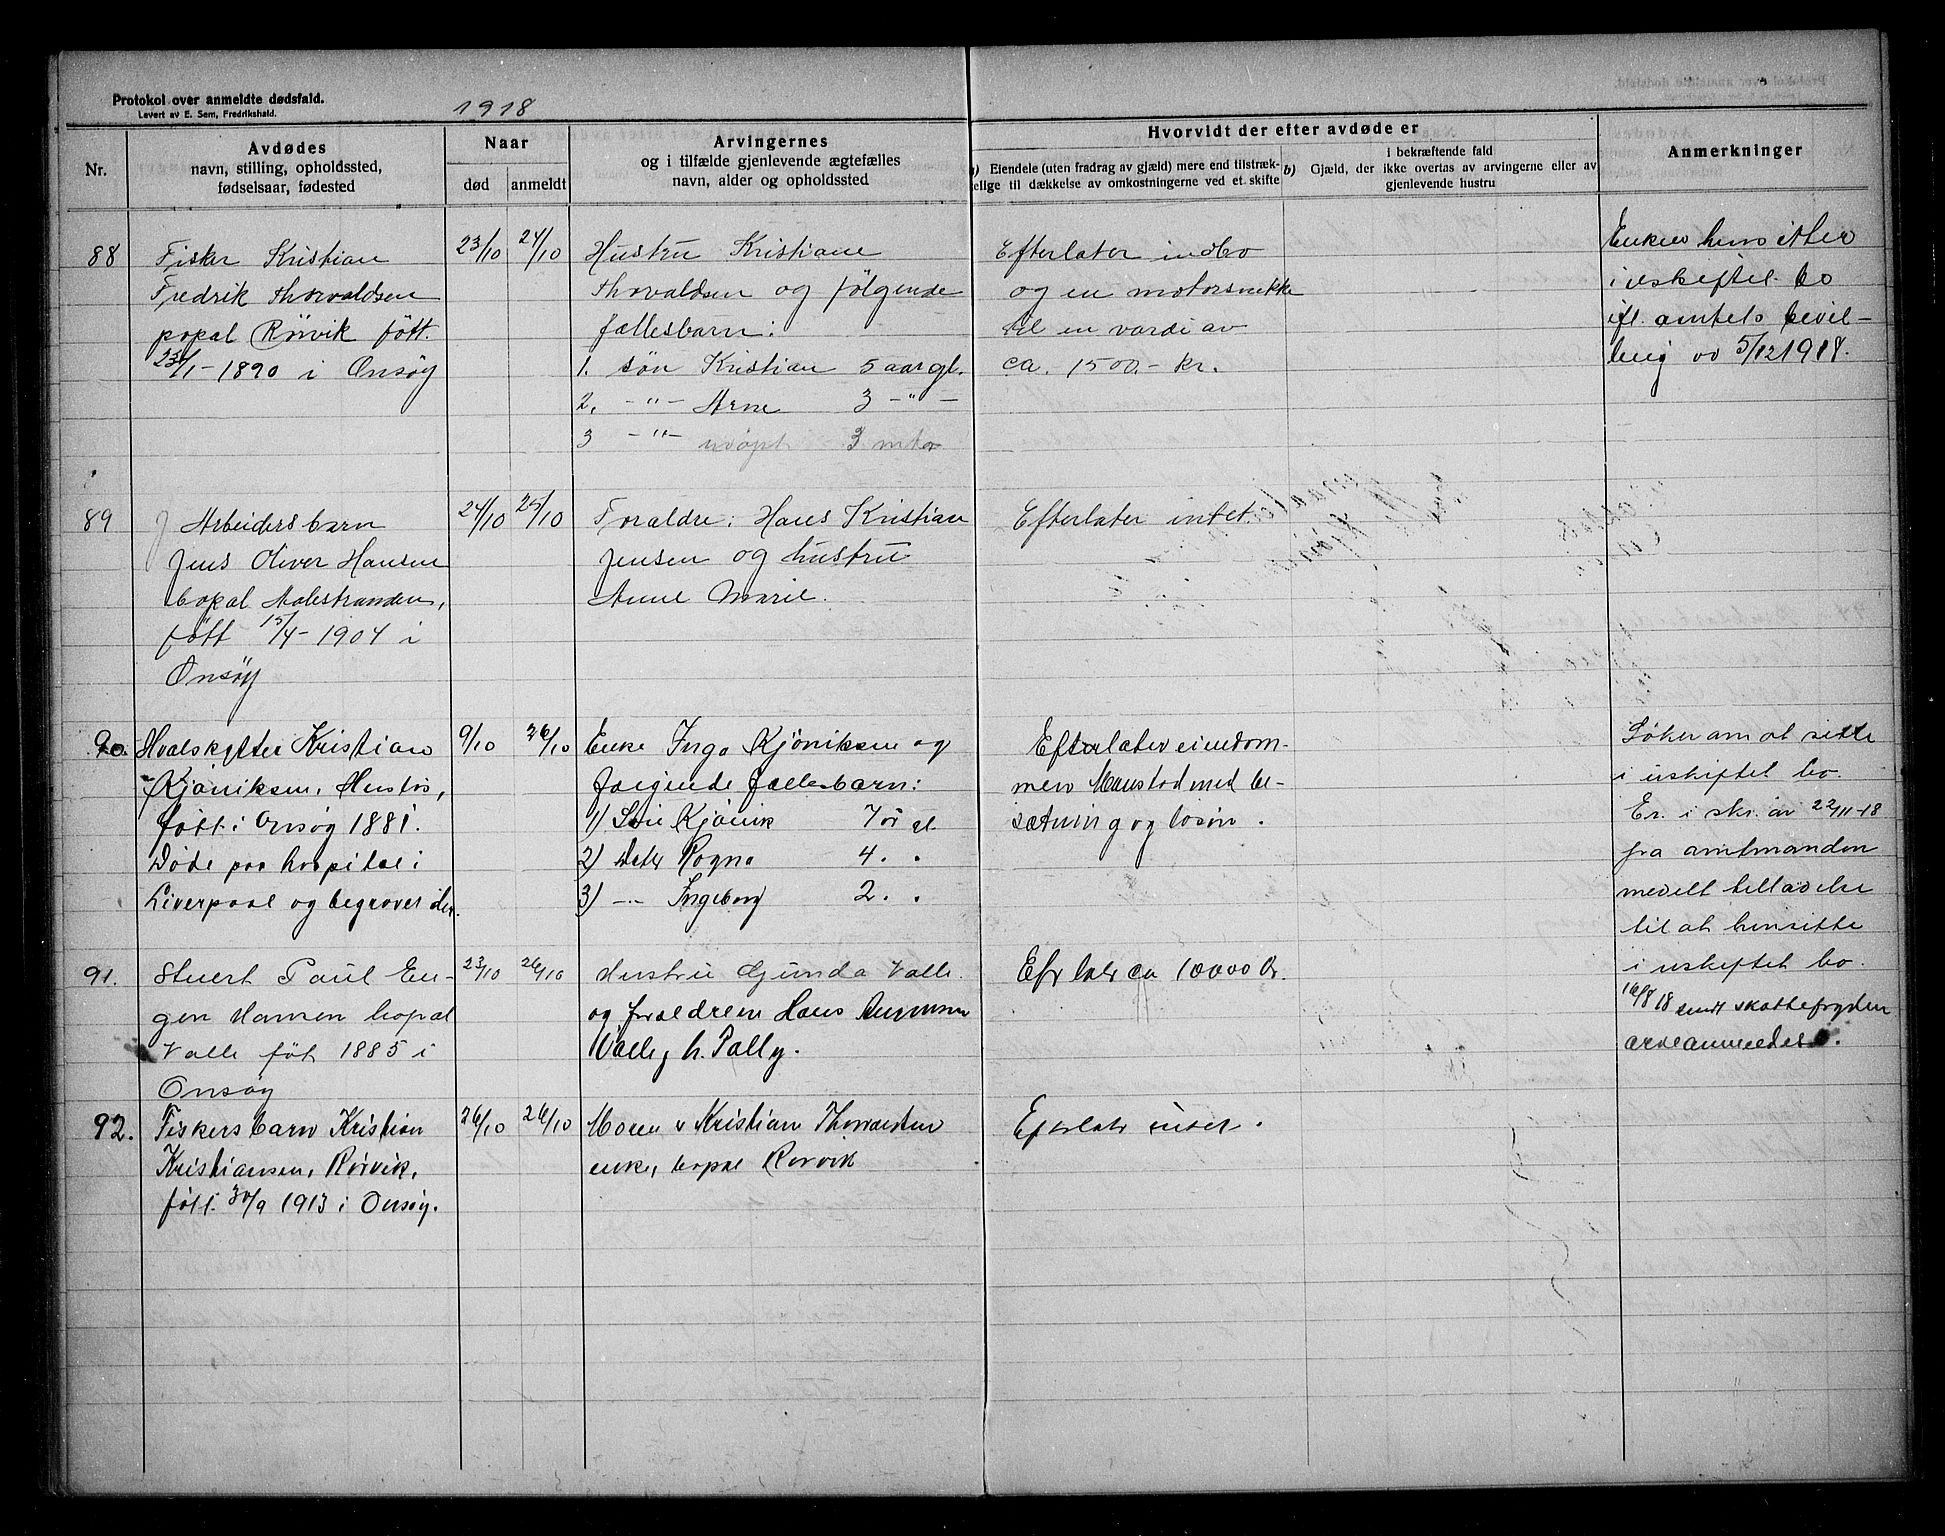 Protokol over anmeldte dødsfald.
Levert av E. Sem, Fredrikshald.
1918
Nr.
Avdødes
navn, stilling, opholdssted,
fødselsaar, fødested
Naar
død
anmeldt
Arvingernes
og i tilfælde gjenlevende ægtefælles
navn, alder og opholdssted
Hvorvidt der efter avdøde er
a) Eiendele (uten fradrag av gjæld) mere end tilstræk-
kelige til dækkelse av omkostningerne ved et skifte
i bekræftende fald
b) Gjæld, der ikke overtas av arvingerne eller av
gjenlevende hustru
Anmerkninger
88
Fisker Kristian
Fredrik Thorvaldsen
bopal Rörvik født.
23/1-1890 i Onsøy
23/10
24/10
Hustru Kristiane
Thorvaldsen og følgende
fællesbarn:
1. søn Kristian 5 aar gl.
2. -"- Arne 3 -"-
3 -"- udøpt 3 mtar
Efterlater indbo
og en motorsnekke
til en værdi av
ca. 1500.- kr.
Enken hensitter
i uskiftet bo
ifl. amtets bevil-
ling av 5/12 1918.
89
Arbeidersbarn
Jens Oliver Hansen
bopal Aalestranden,
født 15/4-1904 i
Onsøy
24/10
25/10
Foraldre: Hans Kristian
Jensen og hustru
Anne Marie.
Efterlater intet.
90.
Hvalskytter Kristian
Kjöniksen,
født i Onsøy 1881.
Døde paa hospital i
Liverpool og begravet der.
9/10
26/10
Enke Inga Kjöniksen og
følgende fællesbarn:
1) Kjönik 7 år gl.
2) Dater Rogna 4. .
3) -..- Ingeborg 2. .
Efterlater eiendom-
men med be-
sætning og løsøre.
Søker om at sitte
i uskiftet bo.
Er i skr. av 22/11-18
fra amtmanden
medelt tilladelse
til at hensitte
i uskiftet bo.
91.
Stuert Paul Eu-
gen Hansen bopal
Valle føt 1885 i
Onsøy
23/10
26/10
Hustru Gunda Valle
og foraldrene Hans
Valle, h. Pally.
Efterlater ca 10000 kr.
16/8 18 sendt skattefogden
arveanmeldelse.
92.
Fiskersbarn Kristian
Kristiansen, Rørvik,
født 30/9 1913 i Onsøy.
26/10
26/10
Moren Kristian Thorvaldsen
enke, bopal Rørvik
Efterlater intet.